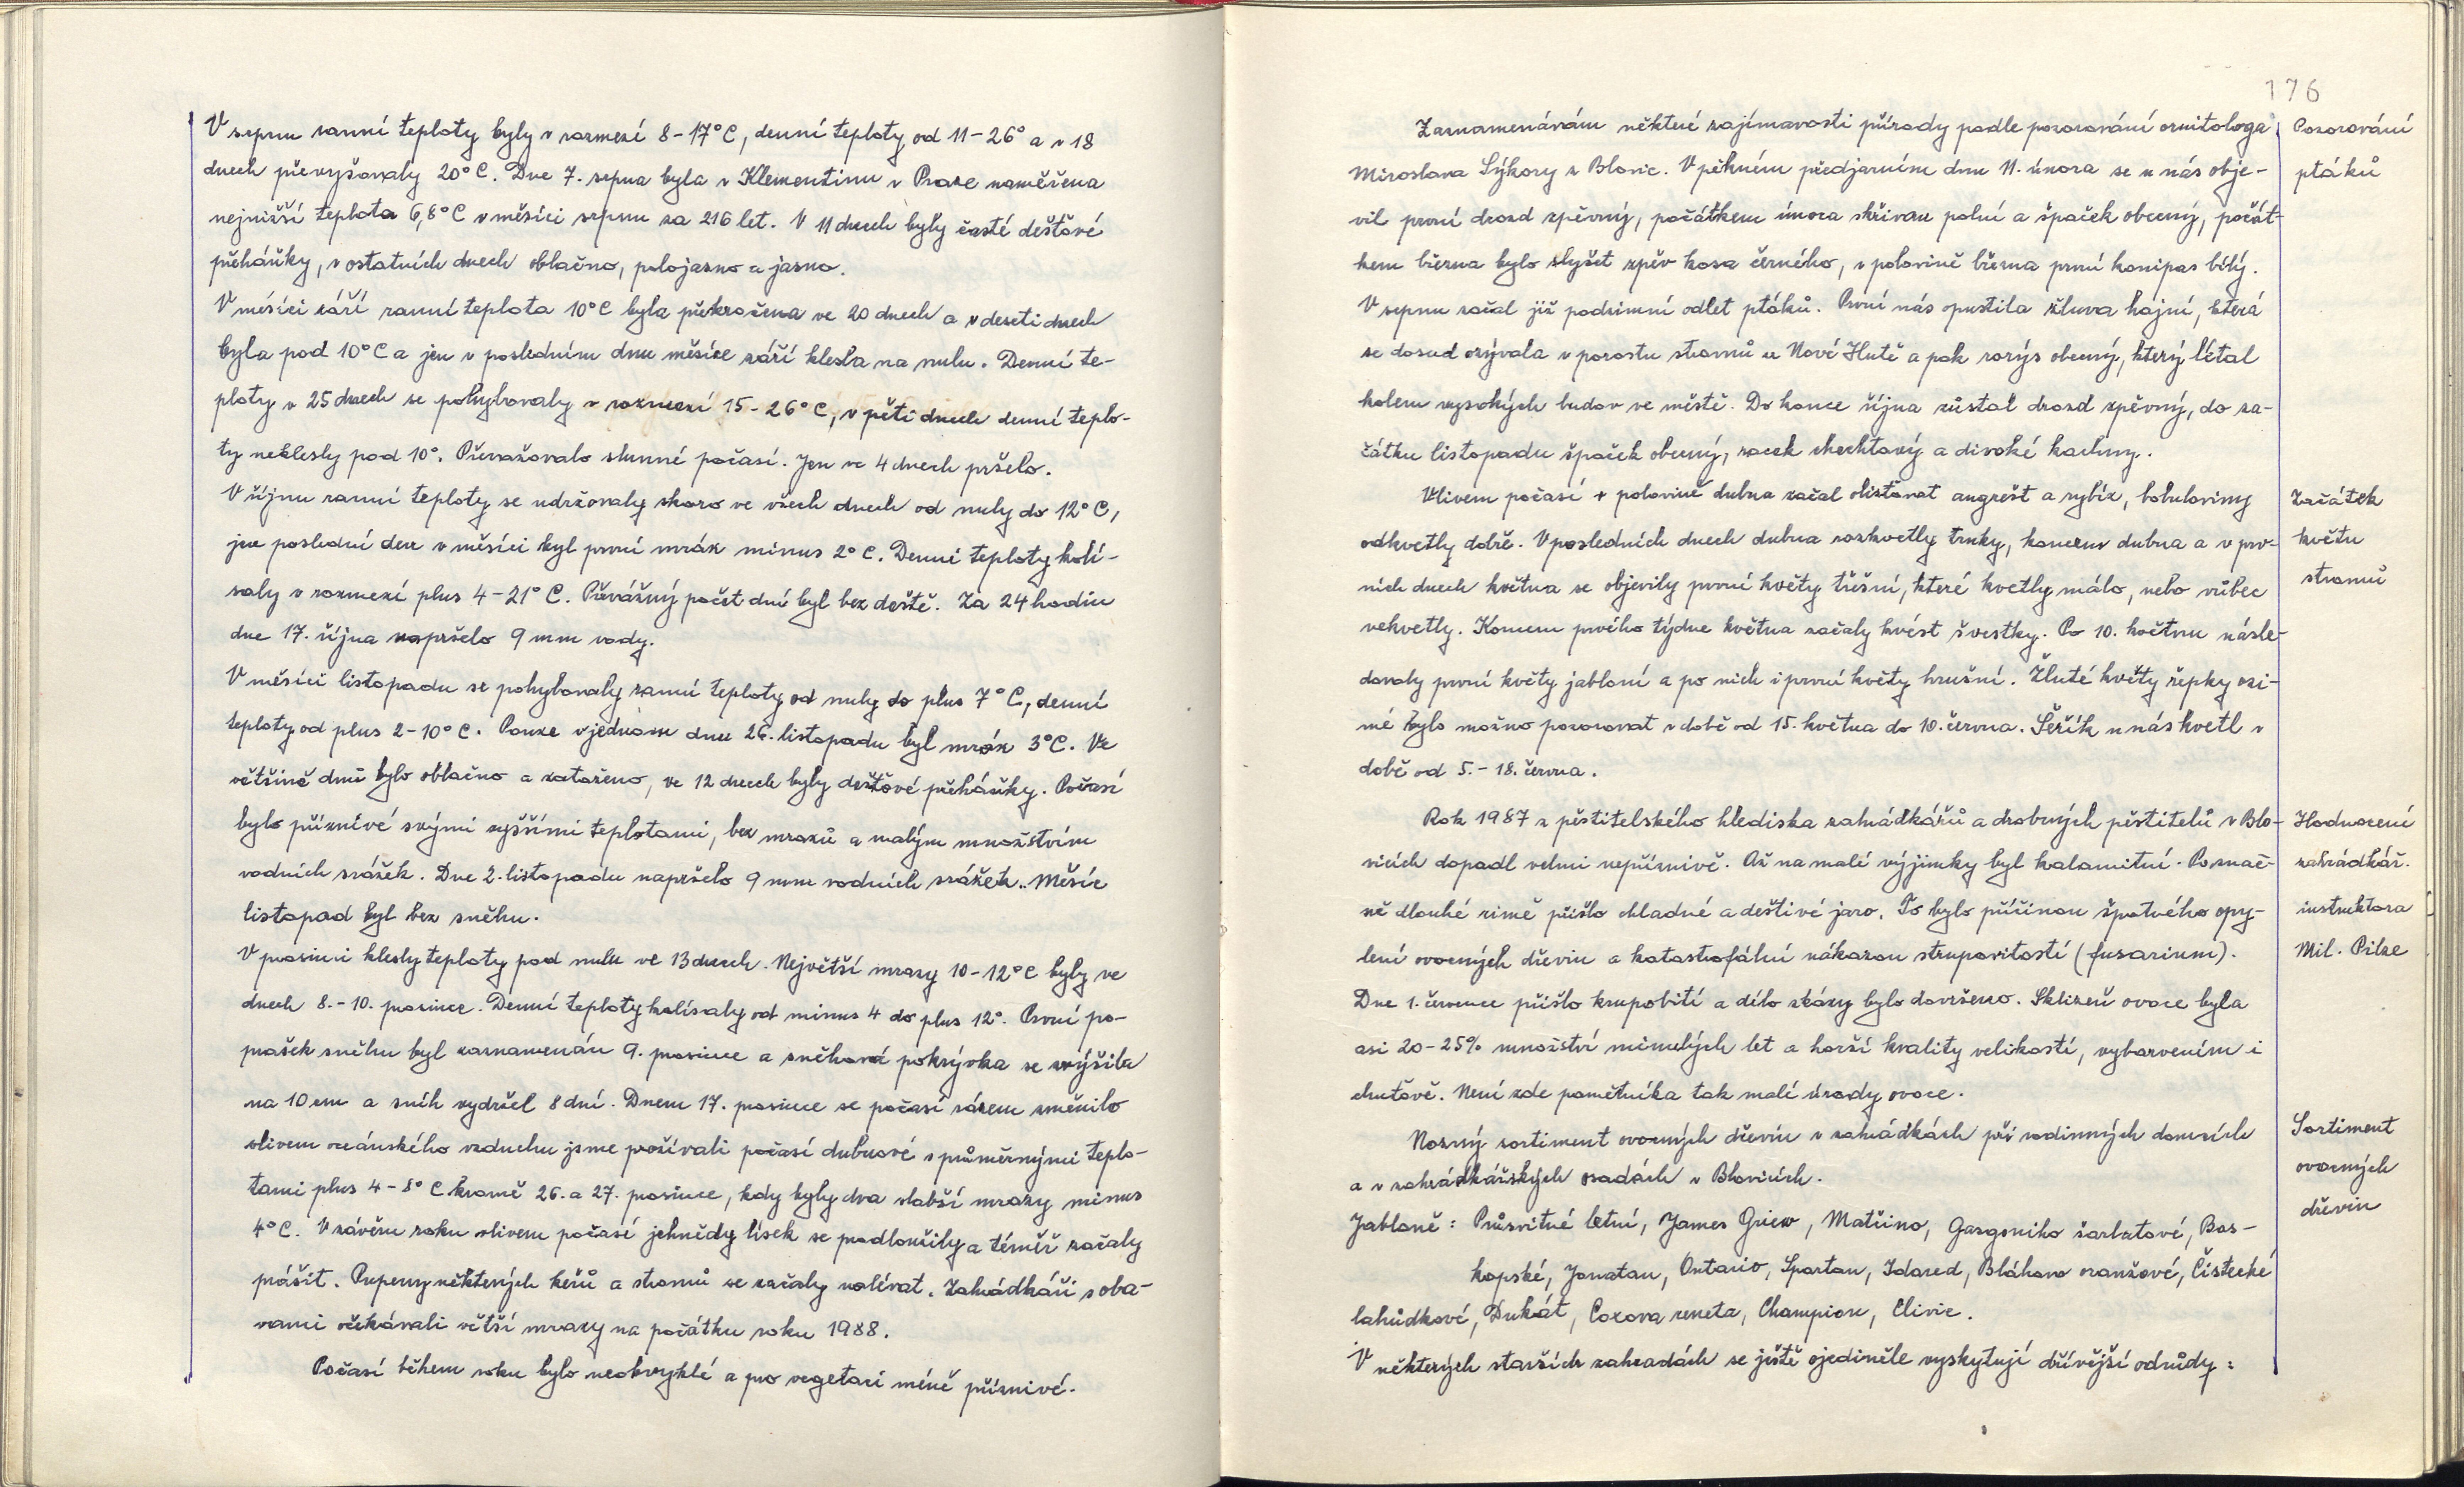 V srpnu ranní teploty byly v rozmezí 8-17°C, denní teploty od 11-26° a v 18
dnech převyšovaly 20°C. Dne 7. srpna byla v Klementinu v Praze naměřena
nejnižší teplota 6,8°C v měsíci srpnu za 216 let. V 11 dnech byly časté dešťové
přeháňky, v ostatních dnech oblačno, polojasno a jasno.
V měsíci září ranní teplota 10°C byla překročena ve 20 dnech a v deseti dnech
byla pod 10°C a jen v posledním dnu měsíce září klesla na nulu. Denní te-
ploty v 25 dnech se pohybovaly v rozmezí 15-26°C, v pěti dnech denní teplo-
ty neklesly pod 10°. Převažovalo slunné počasí. Jen ve 4 dnech pršelo.
V říjnu ranní teploty se udržovaly skoro ve všech dnech od nuly do 12°C,
jen poslední den v měsíci byl první mráz minus 2°C. Denní teploty kolí-
saly v rozmezí plus 4-21°C. Převážný počet dní byl bez deště. Za 24 hodin
dne 17. října napršelo 9 mm vody.
V měsíci listopadu se pohybovaly ranní teploty od nuly do plus 7°C, denní
teploty od plus 2-10°C. Pouze v jednom dnu 26. listopadu byl mráz 3°C. Ve
většině dnů bylo oblačno a zataženo, ve 12 dnech byly dešťové přeháňky. Počasí
bylo příznivé svými vyššími teplotami, bez mrazů a malým množstvím
vodních srážek. Dne 2. listopadu napršelo 9 mm vodních srážek. Měsíc
listopad byl bez sněhu.
V prosinci klesly teploty pod nulu ve 13 dnech. Největší mrazy 10-12°C byly ve
dnech 8.-10. prosince. Denní teploty kolísaly od minus 4 do plus 12°. První po-
prašek sněhu byl zaznamenán 9. prosince a sněhová pokrývka se zvýšila
na 10 cm a sníh vydržel 8 dní. Dnem 17. prosince se počasí rázem změnilo
vlivem oceánského vzduchu jsme prožívali počasí dubnové s průměrnými teplo-
tami plus 4-8°C kromě 26. a 27. prosince, kdy byly dva slabší mrazy minus
4°C. V závěru roku vlivem počasí jehnědy lísek se prodloužily a téměř začaly
prášit. Pupeny některých keřů a stromů se začaly nalévat. Zahrádkáři s oba-
vami očekávali větší mrazy na počátku roku 1988.
Počasí během roku bylo neobvyklé a pro vegetaci méně příznivé.
176
Zaznamenávám některé zajímavosti přírody podle pozorování ornitologa
Miroslava Sýkory z Blovic. V pěkném předjarním dnu 11. února se u nás obje-
vil první drozd zpěvný, počátkem února skřivan polní a špaček obecný, počát-
kem března bylo slyšet zpěv kosa černého, v polovině března první konipas bílý.
V srpnu začal již podzimní odlet ptáků. První nás opustila žluva hajní, která
se dosud ozývala v porostu stromů u Nové Hutě a pak rorýs obecný, který létal
kolem vysokých budov ve městě. Do konce října zůstal drozd zpěvný, do za-
čátku listopadu špaček obecný, racek chechtavý a divoké kachny.
Pozorování
ptáků
Vlivem počasí v polovině dubna začal olisťovat angrešt a rybíz, bobuloviny
odkvetly dobře. V posledních dnech dubna rozkvetly trnky, koncem dubna a v prv-
ních dnech května se objevily první květy třešní, které kvetly málo, nebo vůbec
nekvetly. Koncem prvého týdne května začaly kvést švestky. Po 10. květnu násle-
dovaly první květy jabloní a po nich i první květy hrušní. Žluté květy řepky ozi-
mé bylo možno pozorovat v době od 15. května do 10. června. Šeřík u nás kvetl v
době od 5.-18. června.
Začátek
květu
stromů
Rok 1987 z pěstitelského hlediska zahrádkářů a drobných pěstitelů v Blo-
vicích dopadl velmi nepříznivě. Až na malé výjimky byl kalamitní. Po znač-
ně dlouhé zimě přišlo chladné a deštivé jaro. To bylo příčinou špatného opy-
lení ovocných dřevin a katastrofální nákazou strupovitostí (fusarium).
Dne 1. července přišlo krupobití a dílo zkázy bylo dovršeno. Sklizeň ovoce byla
asi 20-25% množství minulých let a horší kvality velikostí, vybarvením i
chuťově. Není zde pamětníka tak malé úrody ovoce.
Hodnocení
zahrádkář.
instruktora
Mil. Pilze
Nosný sortiment ovocných dřevin v zahrádkách při rodinných domcích
a v zahrádkářských osadách v Blovicích.
Jabloně: Průsvitné letní, James Griew, Matčino, Gasgoniho šarlatové, Bos-
kopské, Jonatan, Ontario, Spartan, Idared, Bláhovo oranžové, Čistecké
lahůdkové, Dukát, Coxova reneta, Champion, Clivie.
V některých starších zahradách se ještě ojediněle vyskytují dřívější odrůdy:
Sortiment
ovocných
dřevin